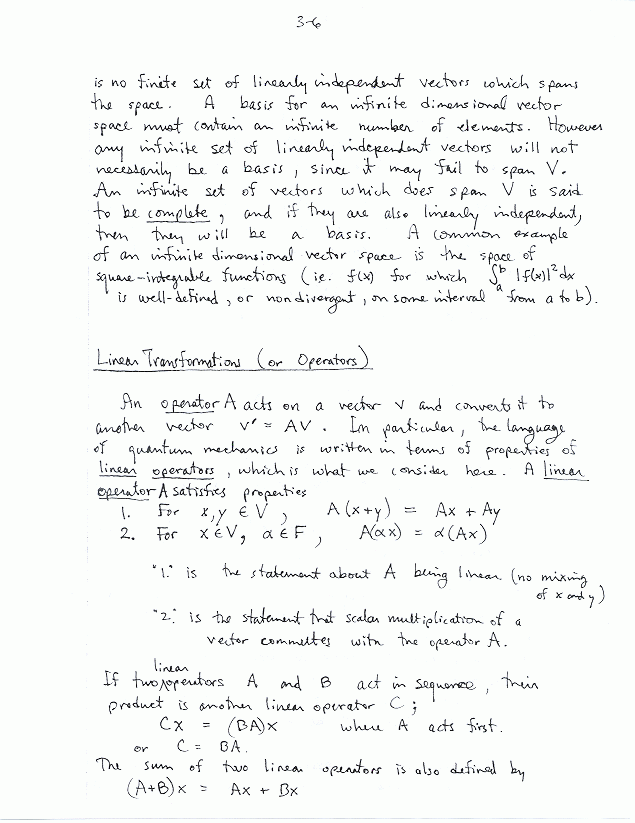 3-6
is no finite set of linearly independent vectors which spans
the space. A basis for an infinite dimensional vector
space must contain an infinite number of elements. However
any infinite set of linearly independent vectors will not
necessarily be a basis, since it may fail to span V.
An infinite set of vectors which does span V is said
to be complete, and if they are also linearly independent,
then they will be a basis. A common example
of an infinite dimensional vector space is the space of
square-integrable functions (ie. f(x) for which ∫_a^b |f(x)|² dx
is well-defined, or nondivergent, on some interval from a to b).
Linear Transformations (or Operators)
An operator A acts on a vector v and converts it to
another vector v' = Av. In particular, the language
of quantum mechanics is written in terms of properties of
linear operators, which is what we consider here. A linear
operator A satisfies properties
1. For x,y ∈ V, A(x+y) = Ax + Ay
2. For x ∈ V, α ∈ F, A(αx) = α(Ax)
"1." is the statement about A being linear (no mixing
of x and y)
"2." is the statement that scalar multiplication of a
vector commutes with the operator A.
linear
If two operators A and B act in sequence, their
product is another linear operator C;
Cx = (BA)x where A acts first.
or C = BA.
The sum of two linear operators is also defined by
(A+B)x = Ax + Bx